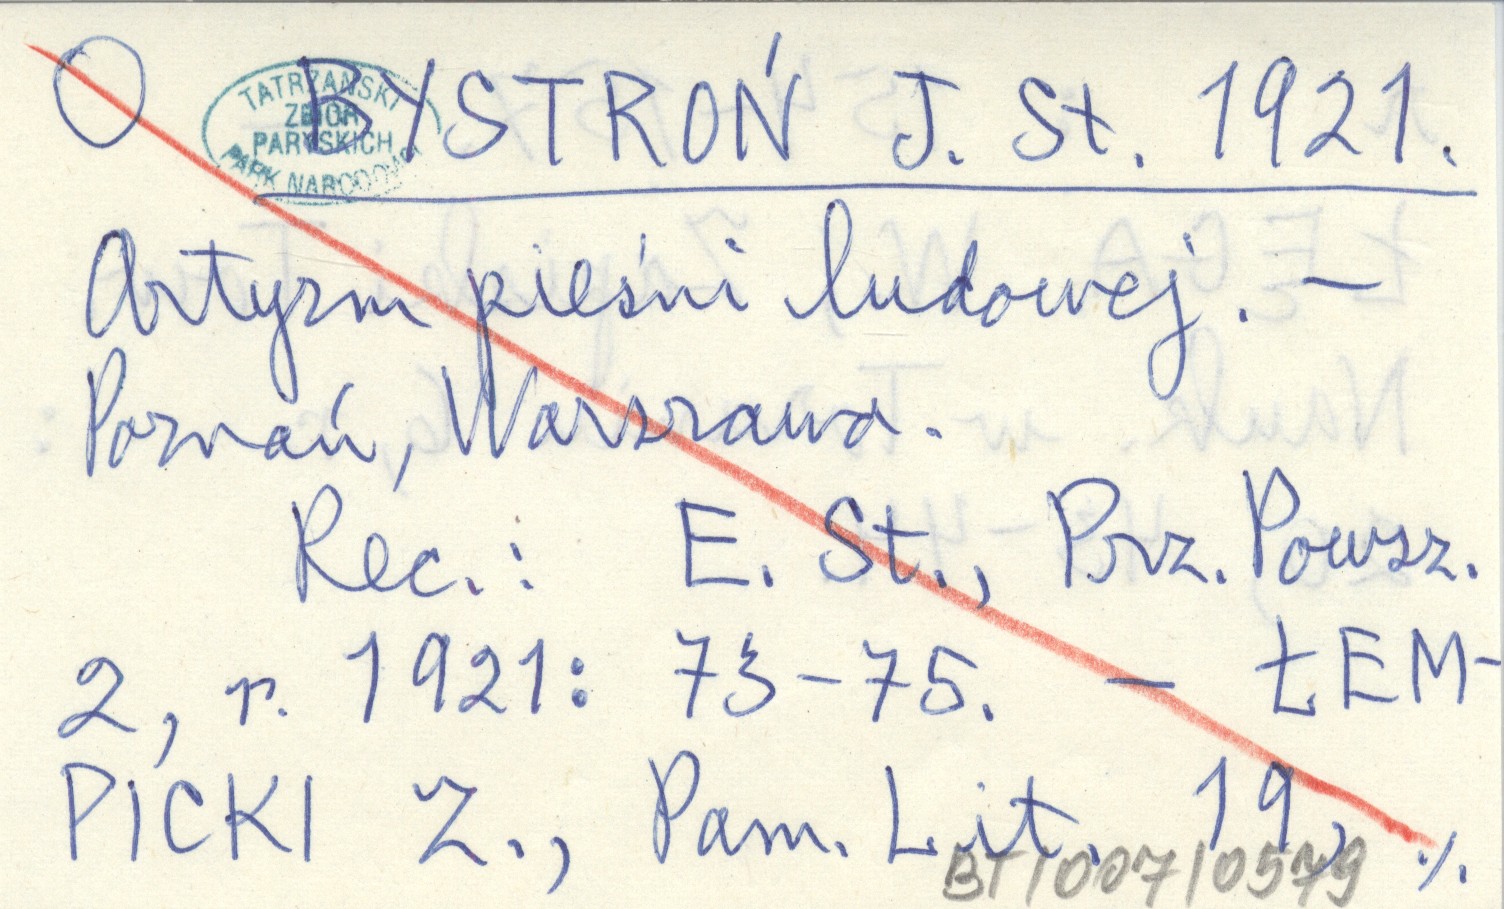 BYSTROŃ J. St. 1921.
TATRZAŃSKI
ZBIÓR
PARYSKICH
PARK NARODOWY
Artyzm pieśni ludowej. —
Poznań, Warszawa.
Rec.: E. St., Prz. Powsz.
2, r. 1921: 73-75. — ŁEM-
PICKI Z., Pam. Lit. 19, ./.
BT/007/0579